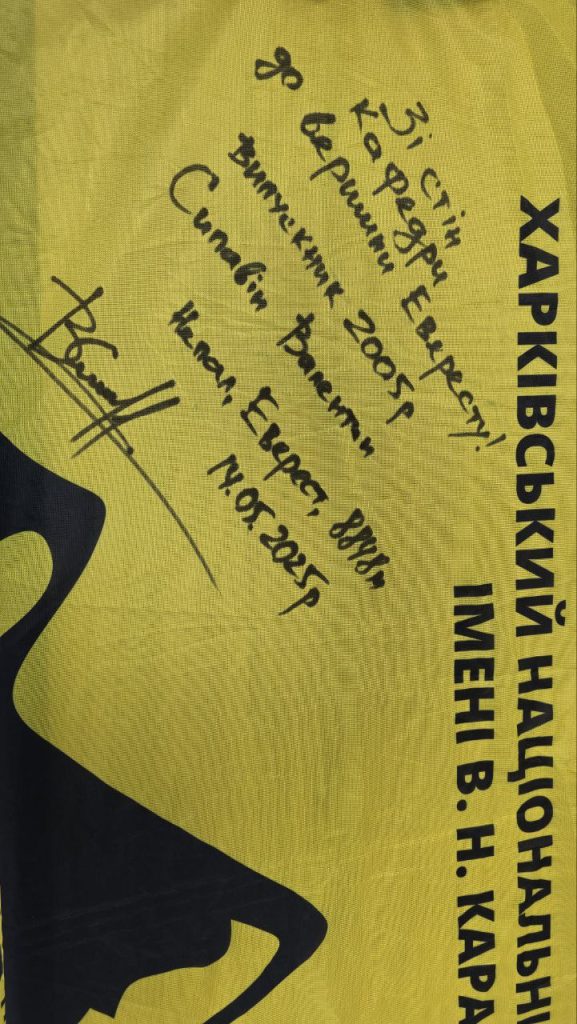 ХАРКІВСЬКИЙ НАЦІОНАЛЬНИ
ІМЕНІ В. Н. КАРА
Зі стін
кафедри
до вершини Евересту!
випускник 2005р
Сипавін Валентин
Непал, Еверест, 8848м
14.05.2025р